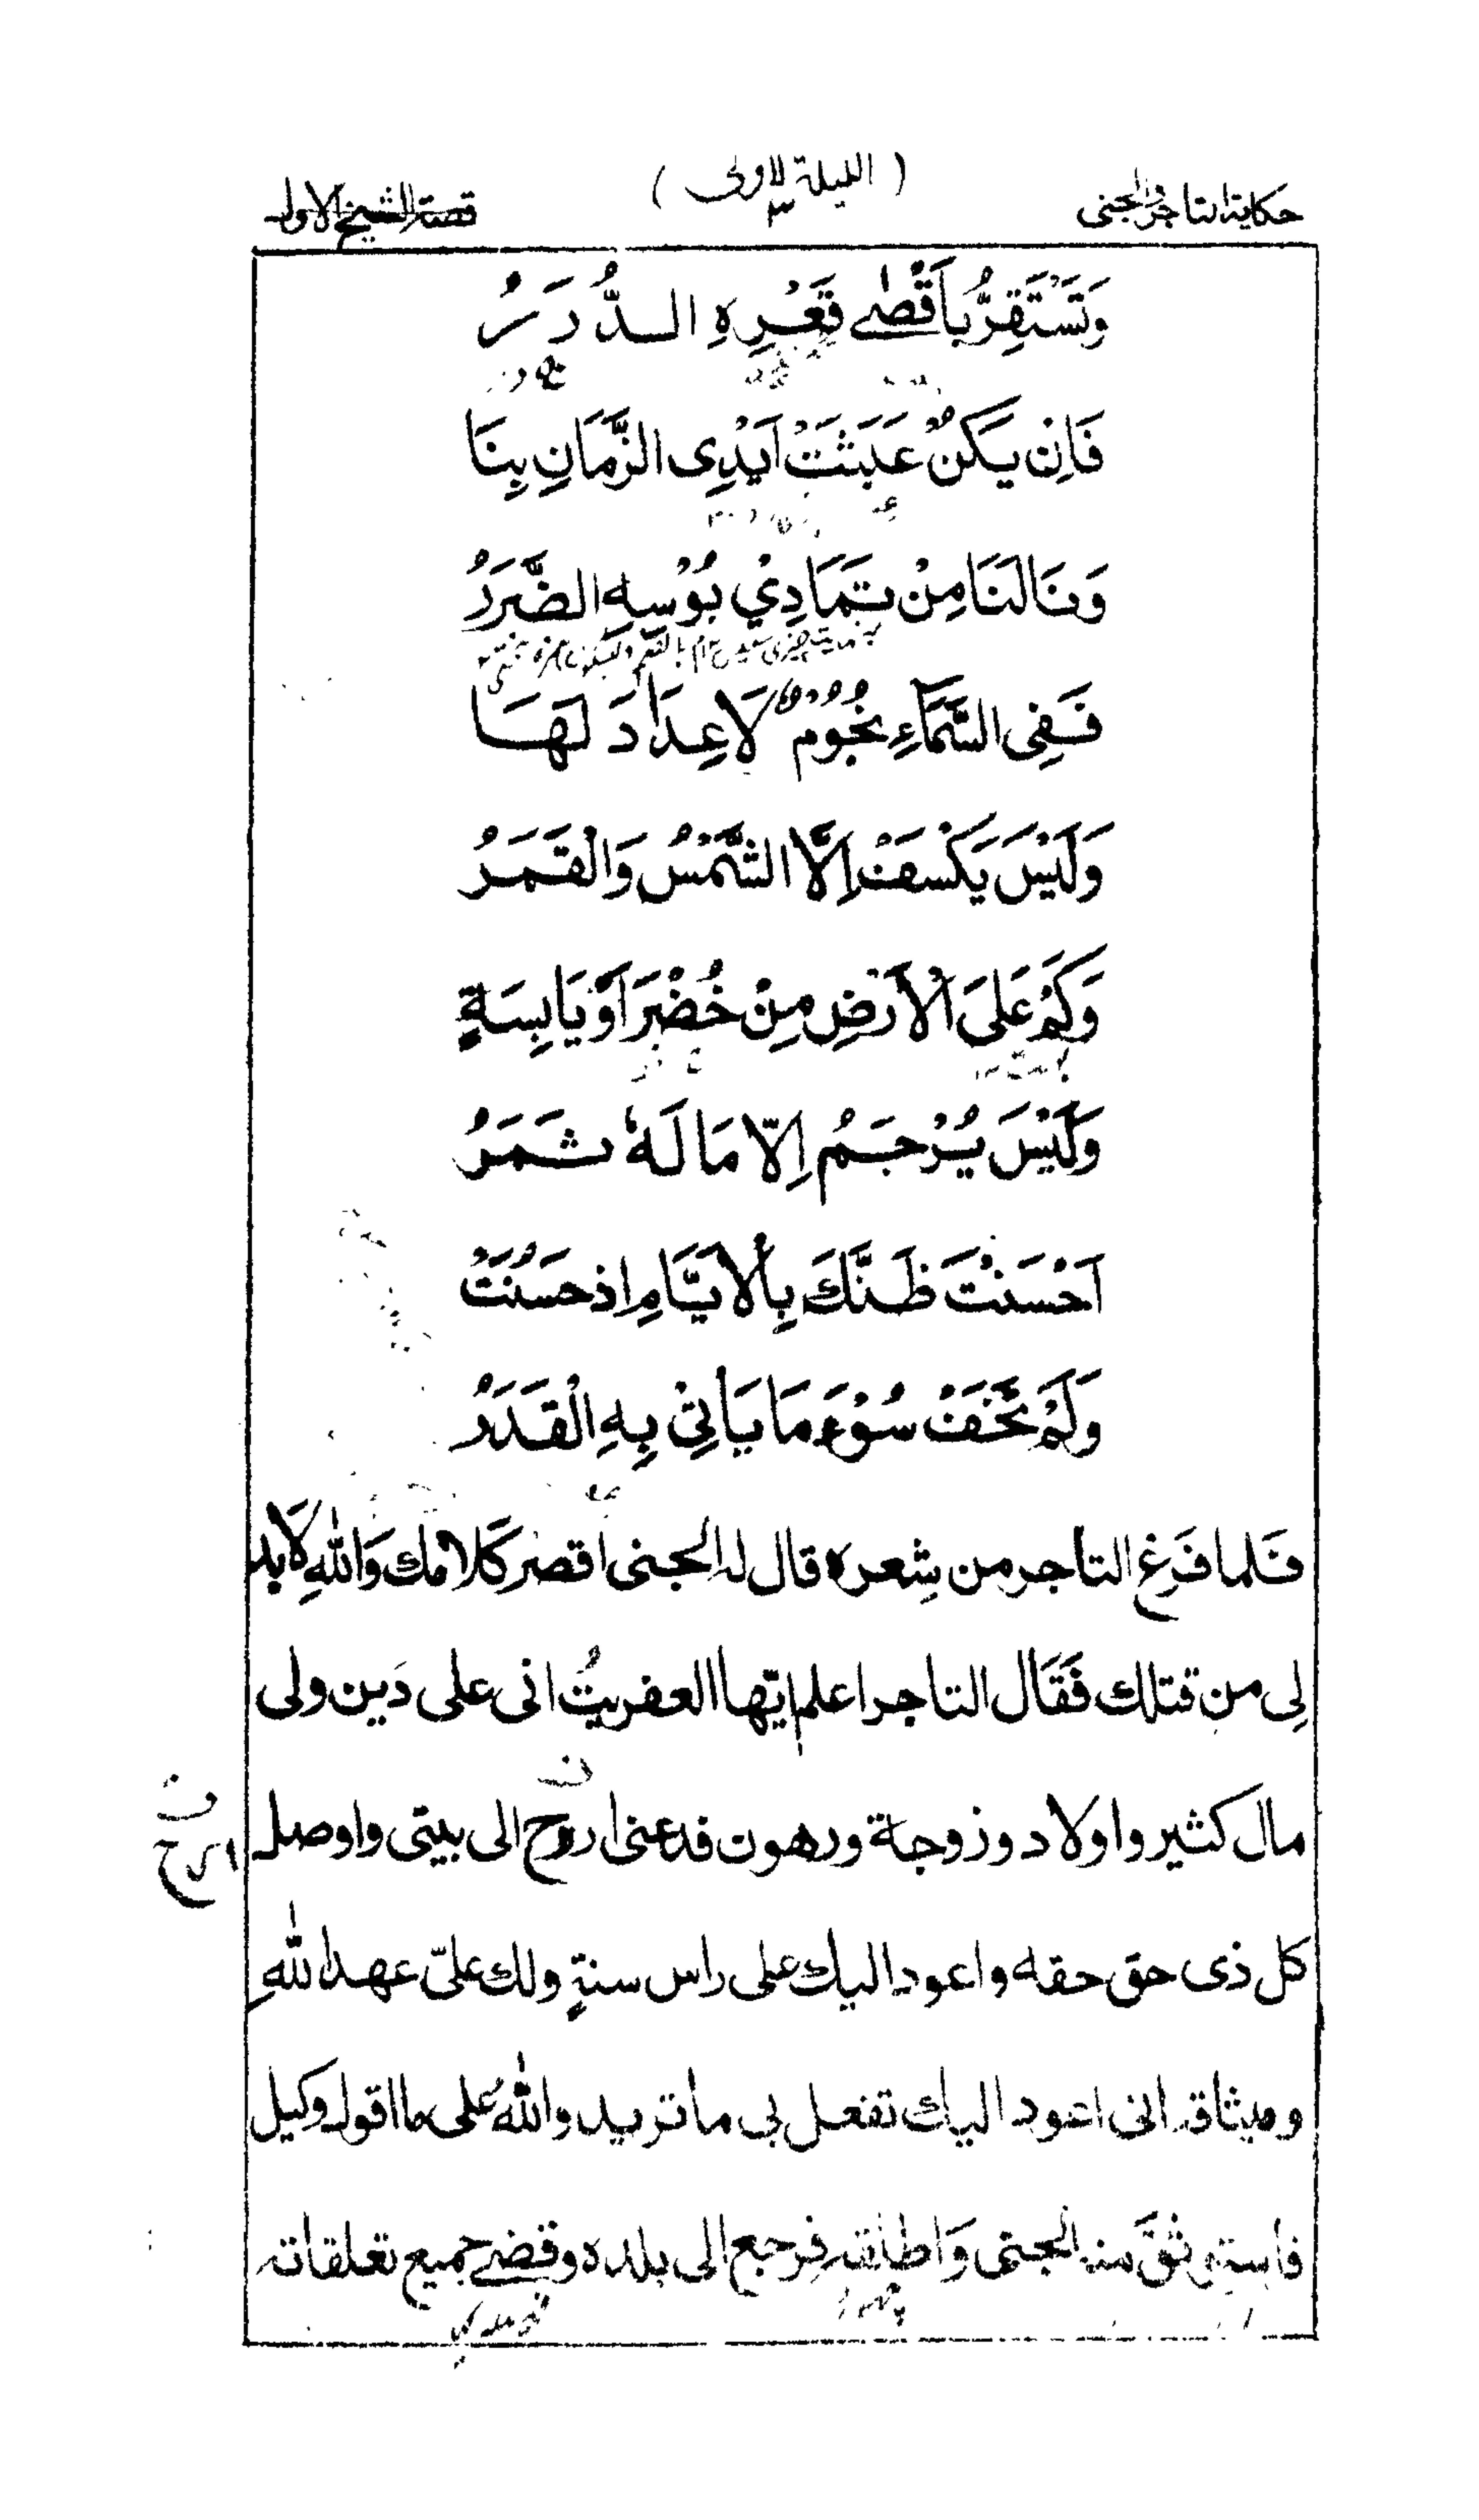 حكاية التاجر والجنى
(الليلة الاولى)
٣
قصة الشيخ الاول
وَتَسْتَقِرُّ بِاَقْصٰے قَعْرِهِ الــدُّرَرُ
فَاِنْ يَـكُنْ عَبَثَتْ اَيْدِى الزَّمَانِ بِنَا
وَنَالَنَا مِنْ تَمَادِيْ بُوْسِهِ الضَّرَرُ
فَـفِى السَّمَآءِ نُجُوْمٌ لَا عِدَادَ لَهَـا
وَلَيْسَ يَكْسِفُ اِلَّا الشَّمْسُ وَالْقَـمَـرُ
وَكَمْ عَلَى الْاَرْضِ مِنْ خُضْرَ اَوْ يَابِسَةٍ
وَلَيْسَ يُـرْجَـمُ اِلّا مَا لَهٗ ثَـمَرُ
اَحْسَنْتَ ظَـنَّكَ بِالْاَيَّامِ اِذ حَسُنَتْ
وَلَمْ تَخَفْ سُوْءَ مَا يَاتِىْ بِهِ الْقَـدَرُ
فَـلما فَرَغ التاجر من شِعره قال له الجنى اقصر كَلامك وَاللهِ لَابد
لِى من قتلك فَقَال التاجر اعلم ايّها العفريتُ انى على دَين ولى
مال كثير واولاد وزوجة ورهون فدعنى اروح الى بيتى واوصل
كل ذى حق حقه واعود اليك على راس سنةٍ ولك علىّ عهد اللهِ
وميثاقه انى اعود اليك تفعل بى ما تريد واللهُ على ما اقول وكيل
فاستوثقَ منه الجنى وَاطلقه فرجع الى بلده وقضے جميع تعلقاته